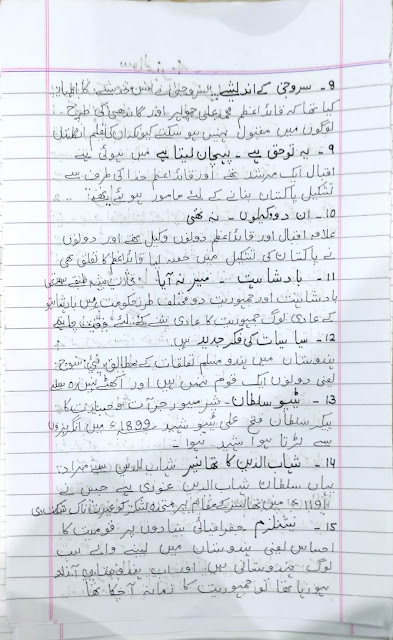 8- سروجنی کے اندیشے
کیا تھا کہ قائد اعظم محمد علی جوہر اور گاندھی کی طرح
لوگوں میں مقبول نہیں ہو سکتے کیونکہ ان کا
9- یہ تو حق ہے - پہچان لیتا ہے میں ہوئی ہے
اقبال ایک مرد تھے اور قائد اعظم خدا کی طرف سے
تشکیل پاکستان بنانے کے لئے مامور ہوئے تھے
10- ان دو وکیلوں - نہ تھی
علامہ اقبال اور قائد اعظم دونوں وکیل تھے اور دونوں
نے پاکستان کی تشکیل میں حصہ لیا قائد اعظم کا تعلق بھی
11- بادشاہت - میسر نہ آیا
بادشاہیت اور جمہوریت دو مختلف طرز حکومت ہیں بادشاہت
کے عادی لوگ جمہوریت کا عادی بننے کے لئے وقت چاہیے
12- سیاسیات کی فکر جدید میں
ہندوستان میں ہندو مسلم تعلقات کے مطابق نئی سوچ
یعنی دونوں ایک قوم نہیں ہیں اور اکٹھے نہیں رہ سکتے
13- ٹیپو سلطان - شیر میسور جرأت و جسارت کا
پیکر سلطان فتح علی ٹیپو شہید 1899ء میں انگریزوں
سے لڑتا ہوا شہید ہوا -
14- شہاب الدین کا تھانیسر شہاب الدین سے مراد
یہاں سلطان شہاب الدین غوری ہے جس نے
1191ء میں تھانیسر کے مقام پر لشکر کو شکست دی
15- نیشنلزم جغرافیائی بنیادوں پر قومیت کا
احساس یعنی ہندوستان میں بسنے والے سب
لوگ ہندوستانی ہیں اور اب ہندوستان آزاد
ہو رہا تھا تو جمہوریت کا زمانہ آ چکا تھا